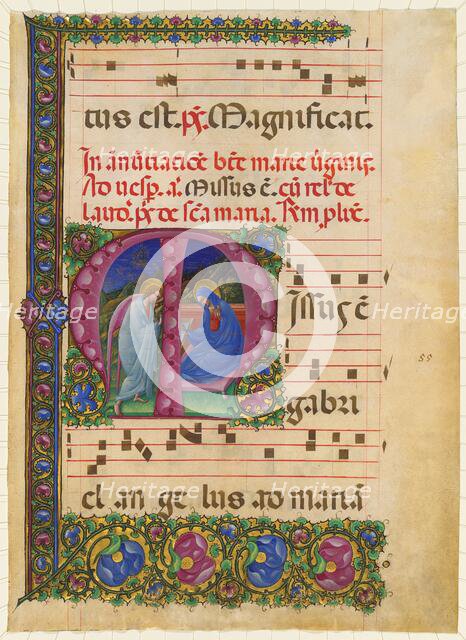 tus est. p̄s. Magnificat.
In ānūciatiōe bt̄e marie ūginis.
Ad uesp̄. a. Missus ē. cū rel' de
laud'. p̄s de sc̄a maria.
Missus ē
gabri
el an ge lus ad mariā
55
Heritage
Heritage
Heritage
Heritage
Heritage
Heritage
Heritage
Heritage
Heritage
Heritage